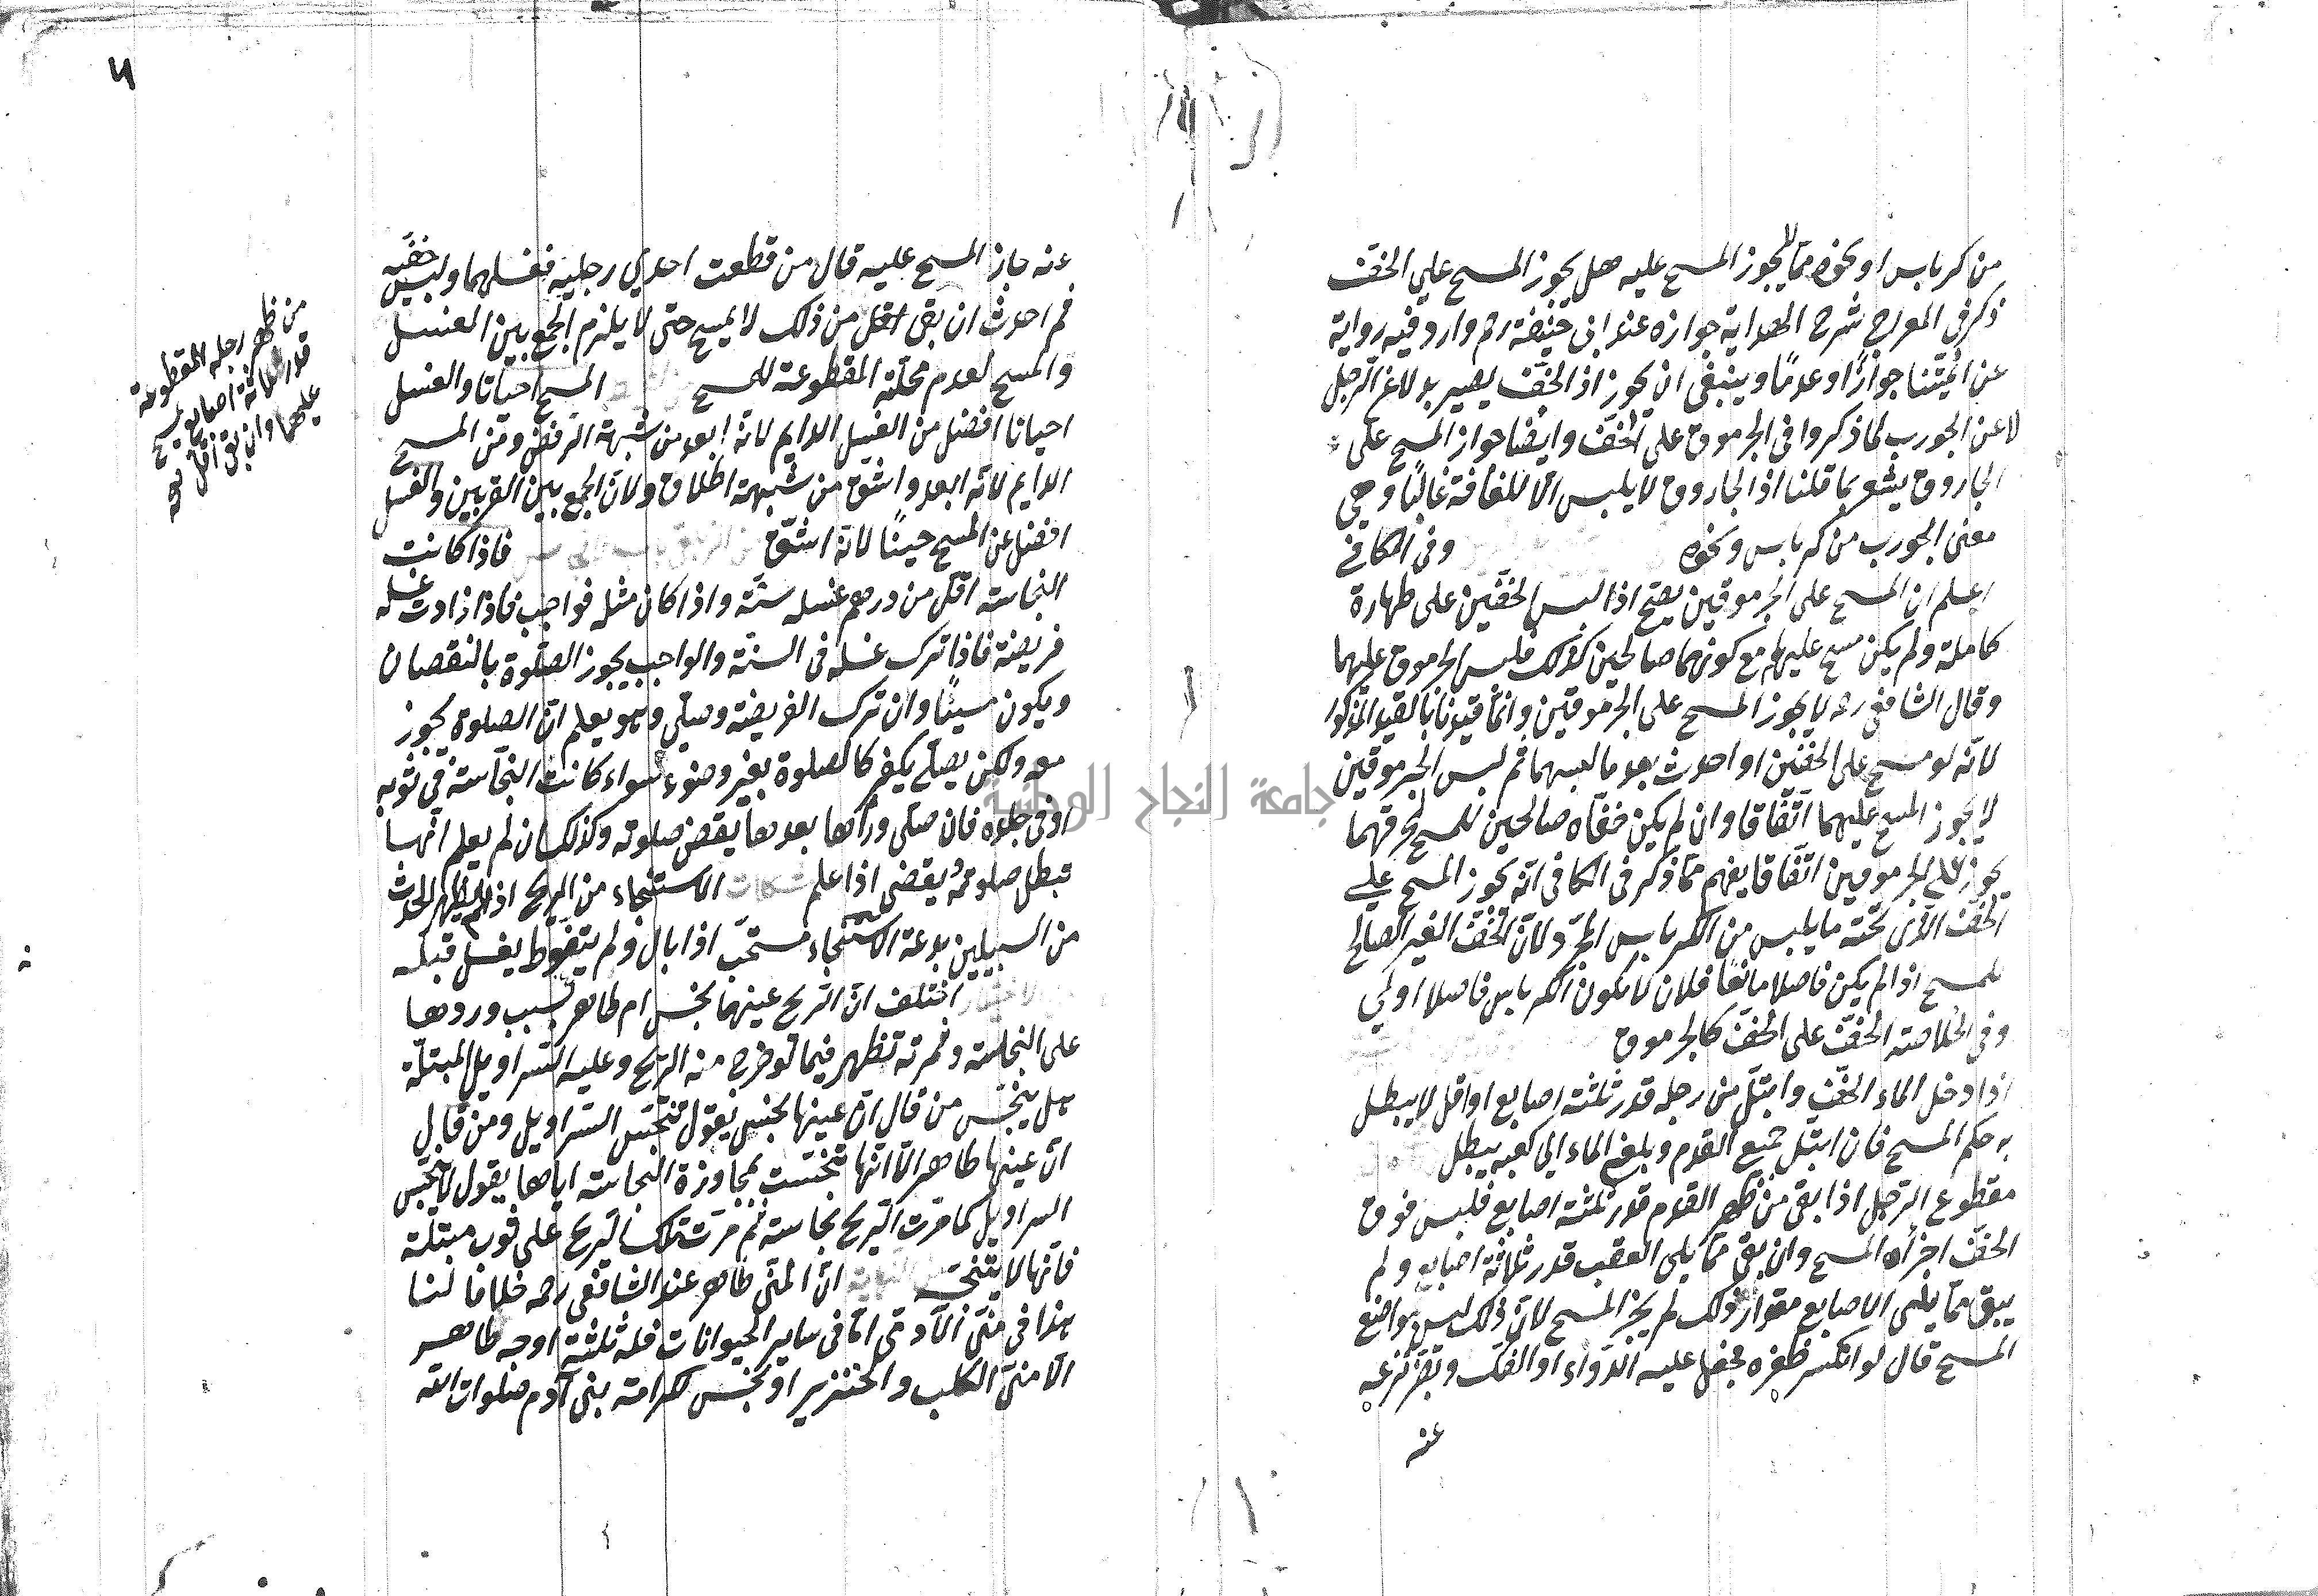 من كرباس او نحوه مما لا يجوز المسح عليه هل يجوز المسح علي الخف
ذكر في المعراج شرح الهداية جوازه عند ابي حنيفة رح وارد فيه رواية
عن ائمتنا جوازًا وعدمًا وينبغي ان يجوز اذ الخف يصير بدلا عن الرجل
لا عن الجورب لما ذكروا في الجرموق على الخف وايضا جواز المسح على
الجاروق يشعر بما قلنا اذ الجاروق لا يلبس الا للفافة غالبًا وهي
معنى الجورب من كرباس ونحوه وفي الكافي
اعلم ان المسح على الجرموقين يصح اذا لبس الخفين على طهارة
كاملة ولم يكن مسح عليهما مع كونهما صالحين كذلك فلبس الجرموق عليهما
وقال الشافعي رحه لا يجوز المسح على الجرموقين وانما قيدنا بالقيد المذكور
لانه لو مسح على الخفين او احدث بعد ما لبسهما ثم لبس الجرموقين
لا يجوز المسح عليهما اتفاقا وان لم يكن خفاه صالحين للمسح لخرقهما
يجوز على الجرموقين اتفاقا يفهم مما ذكر في الكافي انه يجوز المسح علي
الخف الذي تحته ما يلبس من الكرباس المجرد لان الخف الغير الصالح
للمسح اذا لم يكن فاصلا مانعا فلان لا يكون الكرباس فاصلا اولي
وفي الخلاصة الخف على الخف كالجرموق
اذا دخل الماء الخف وابتل من رجله قدر ثلثة اصابع او اقل لا يبطل
به حكم المسح فان ابتل جميع القدم وبلغ الماء الي كعبه يبطل
مقطوع الرجل اذا بقي من ظهر القدم قدر ثلثة اصابع فلبس فوق
الخف اجزأه المسح وان بقي مما يلي العقب قدر ثلاثة اصابع ولم
يبق مما يلي الاصابع مقدار ذلك لم يجز المسح لان ذلك ليس مواضع
المسح قال لو انكسر ظفره فجعل عليه الدواء او العلك ويضره نزعه
عنه
عنه جاز المسح عليه قال من قطعت احدي رجليه فغسلهما ولبس خفيه
ثم احدث ان بقي اقل من ذلك لا يمسح حتى لا يلزم الجمع بين الغسل
والمسح لعدم محلة المقطوعة للمسح المسح احيانا والغسل
احيانا افضل من الغسل الدايم لانه ابعد من شبهة الرفض ومن المسح
الدايم لانه ابعد واشق من شبهة اطلاق ولان الجمع بين القربين والغسل
افضل عن المسح حينًا لانه اشق فاذا كانت
النجاسة اقل من درهم غسله سنة واذا كان مثله فواجب فاذا زادت غسله
فريضة فاذا ترك غسله في السنة والواجب يجوز الصلوة بالنقصان
ويكون مسيئًا وان ترك الفريضة وصلي وهو يعلم ان الصلوة يجوز
معه ولكن يصلي يكفر كالصلوة بغير وضوء سواء كانت النجاسة في ثوبه
او في جلده فان صلى ورأها بعدها يقض صلوته وكذلك ان لم يعلم انها
تبطل صلوته ويقضى اذا علم الاستنجاء من الريح اذا لم يظهر الحدث
من السبيلين بدعة الاستنجاء مستحب اذا بال ولم يتغوط يغسل قبله
اختلف ان الريح عينها نجس ام طاهر بسبب ورودها
على النجاسة وثمرته تظهر فيما لو خرج منه الريح وعليه السراويل المبتلة
هل ينجس من قال ان عينها نجس يقول تنجس السراويل ومن قال
ان عينها طاهر الا انها تنجست بمجاورة النجاسة اياها يقول لا تنجس
السراويل كما مرت الريح بنجاسة ثم مرت تلك الريح على ثوب مبتلة
فانها لا يتنجس ان المني طاهر عند الشافعي رحه خلافا لنا
هذا في مني الآدمي اما في ساير الحيوانات فله ثلثة اوجه طاهر
الا مني الكلب والخنزير او نجس لكرامة بني آدم صلوات الله
من ظهر رجله المقطوعة
قدر ثلاثة اصابع يمسح
عليهما وان بقي اقل
جامعة النجاح الوطنية